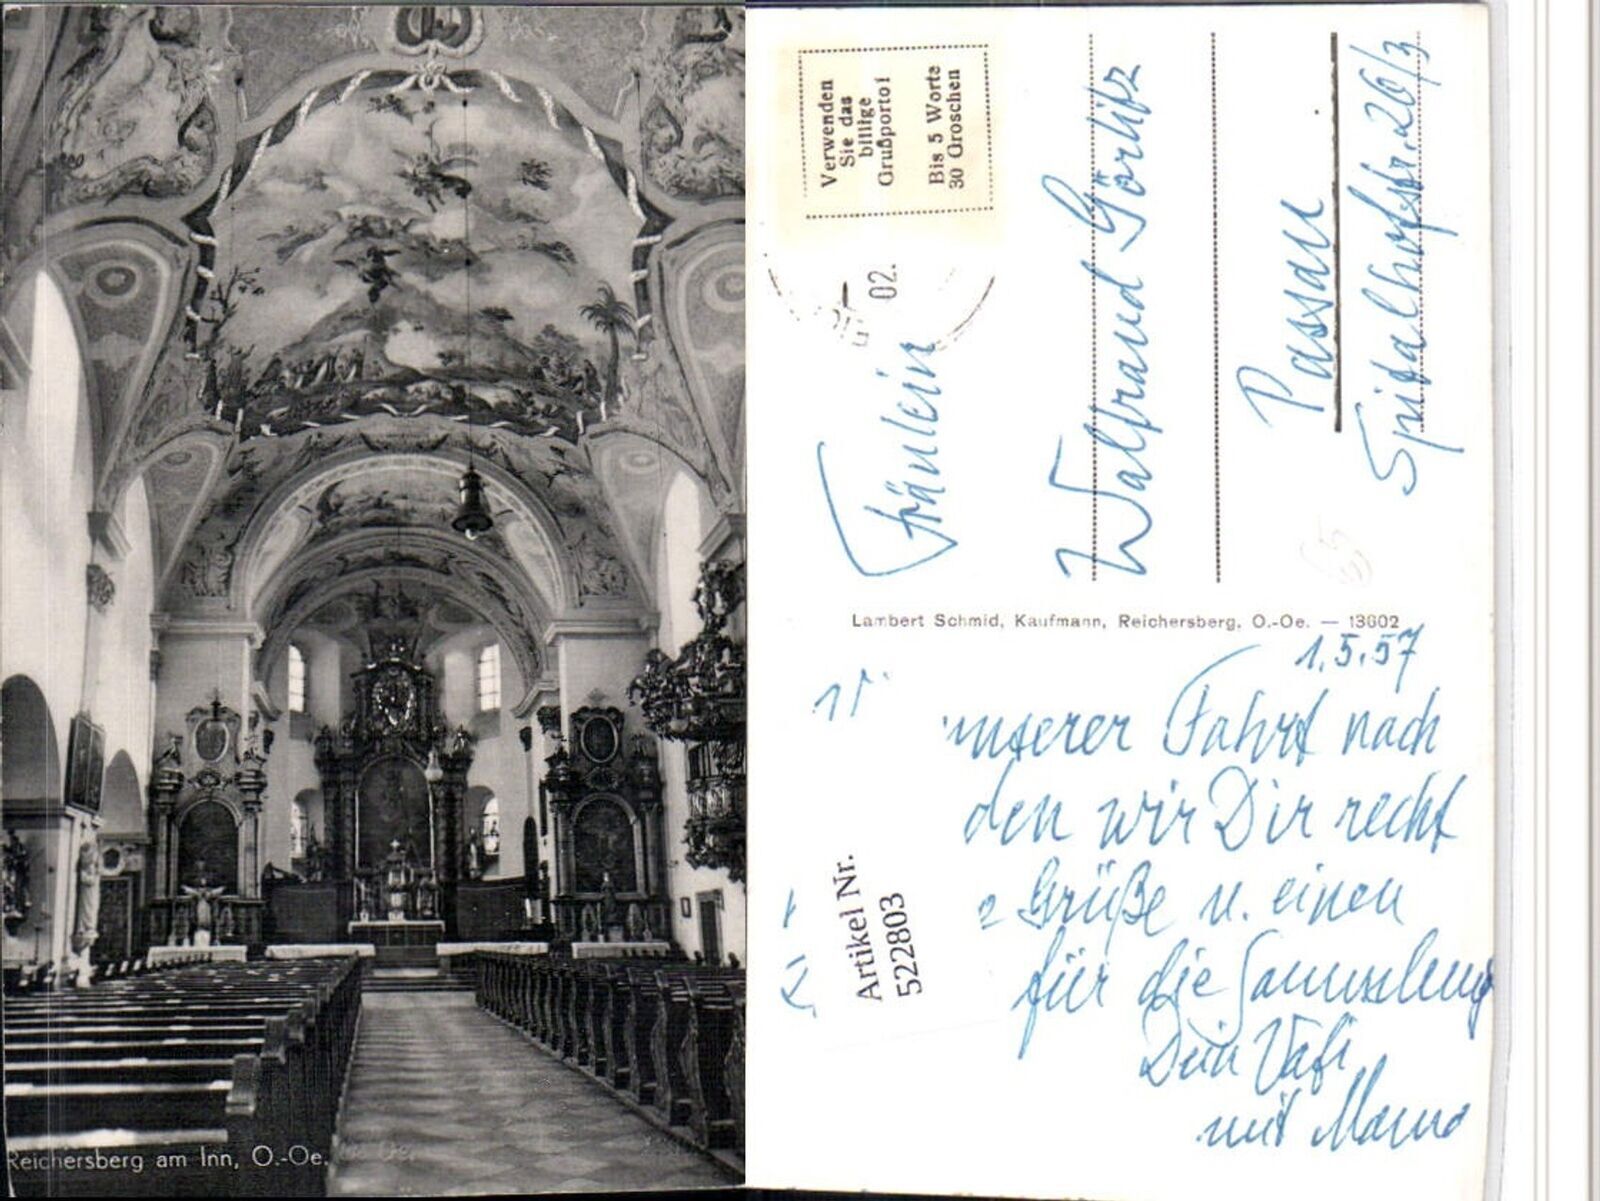 Reichersberg am Inn, O.-Oe.
Verwenden
Sie das
billige
Grußporto!
Bis 5 Worte
30 Groschen
02.
Fräulein
Waltraud Görlitz
Passau
Spitalhofstr. 26/3
Lambert Schmid, Kaufmann, Reichersberg, O.-Oe. — 13602
1.5.57
unserer Fahrt nach
den wir Dir recht
Grüße u. einen
für die Sammlung
Dein Vati
mit Mama
Artikel Nr.
522803